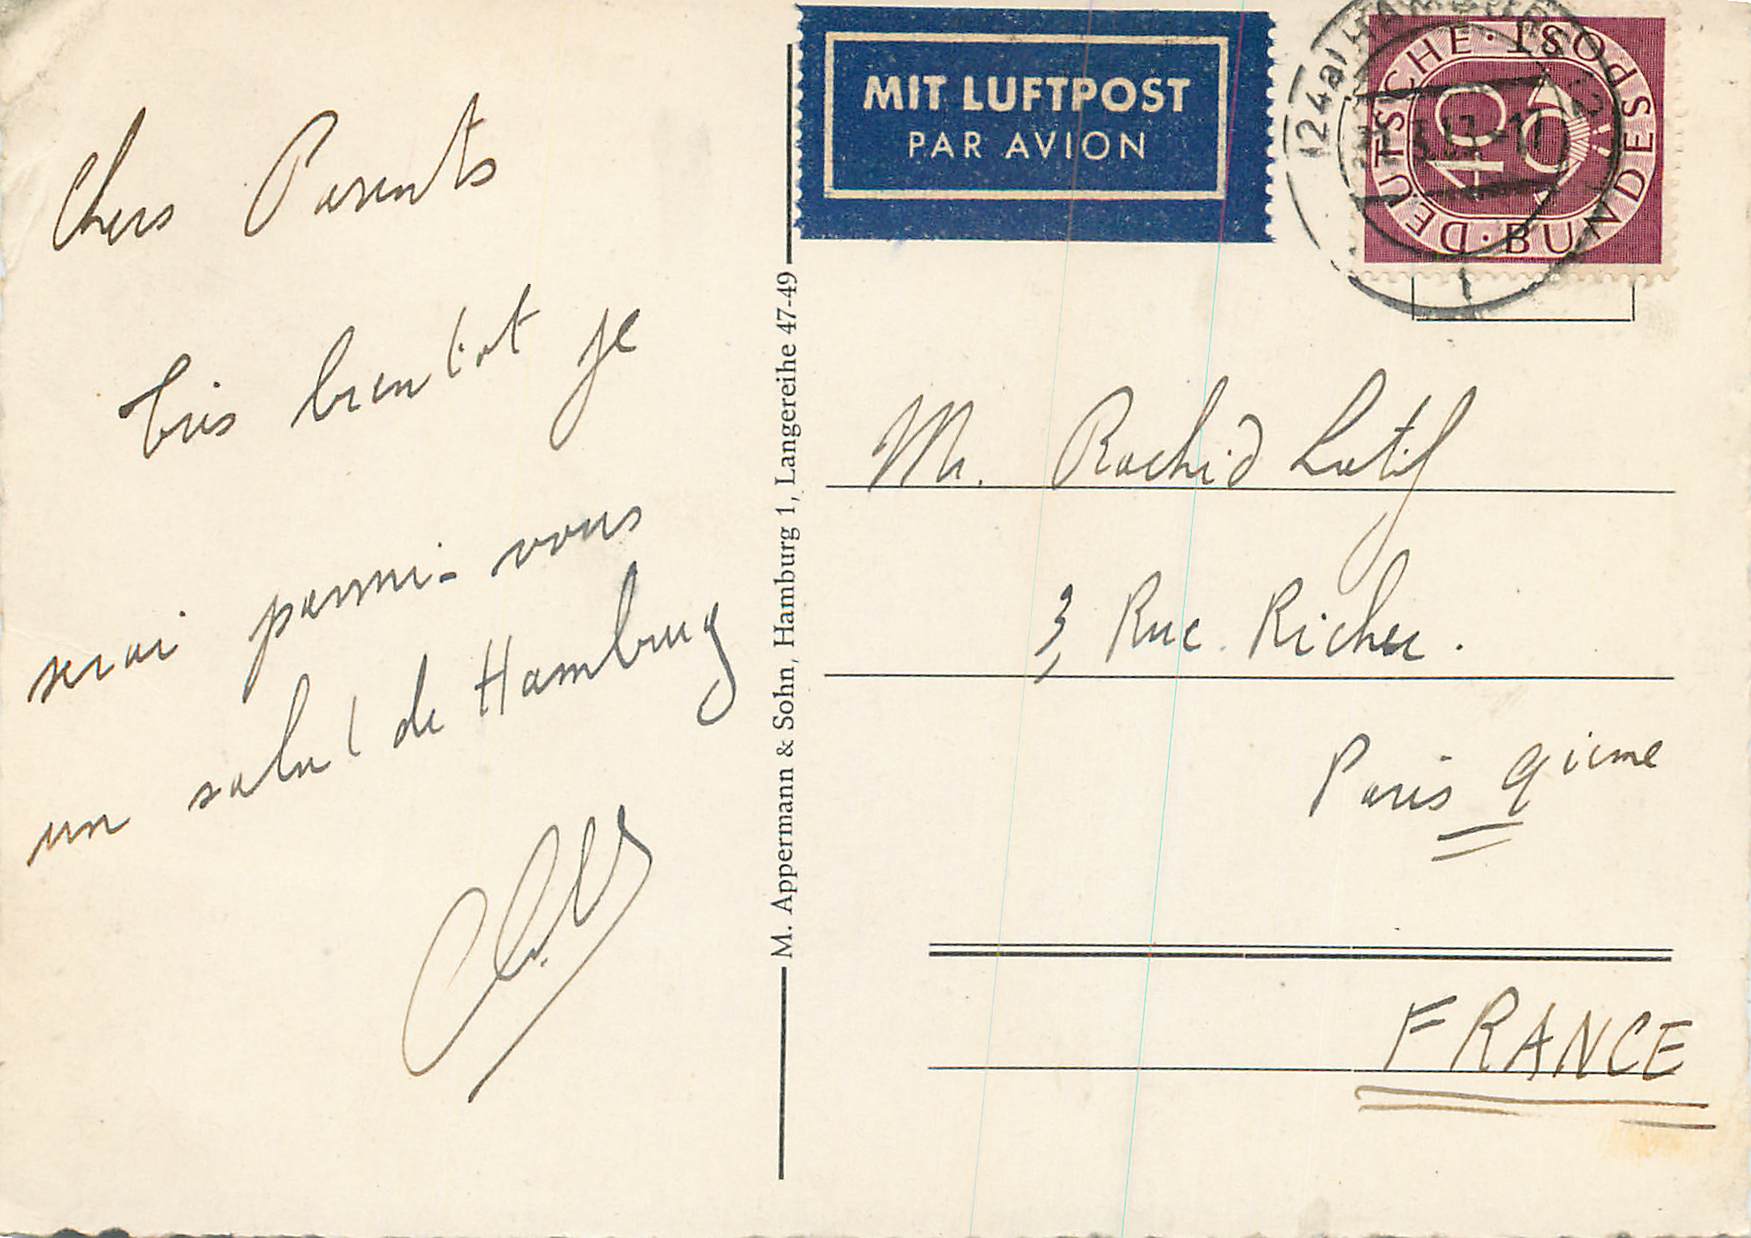 Chers Parents
Très bientot je
serai parmi-vous
un salut de Hamburg
MIT LUFTPOST
PAR AVION
DEUTSCHE · BUNDESPOST ·
40
(24a) HAMBURG
M. Appermann & Sohn, Hamburg 1, Langereihe 47-49
Mr. Rachid Latif
3, Rue Richer.
Paris 9ieme
FRANCE